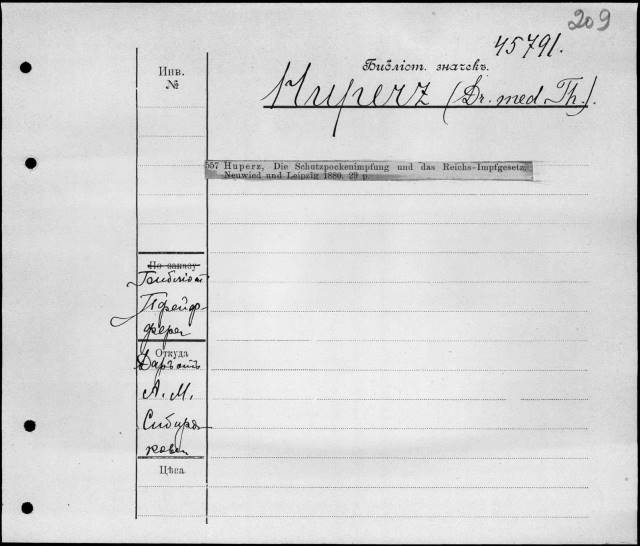 209
45791.
Библіот. значекъ.
Инв.
№
Huperz (Dr. med Th.).
557 Huperz, Die Schutzpockenimpfung und das Reichs-Impfgesetz.
Neuwied und Leipzig 1880. 29 p.
По заказу
Откуда
Даръ отъ
А. М.
Сибиря-
кова
Цѣса